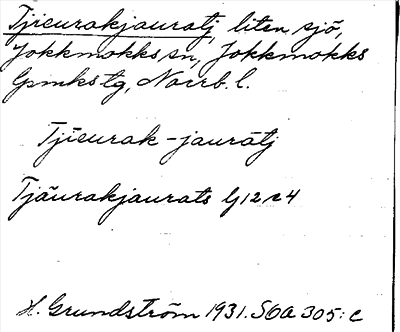 Tjieurakjauratj, liten sjö,
Jokkmokks sn, Jokkmokks
lpmkstg, Norrb. l.
Tjieurak-jauratj
Tjäurakjaurats lj 12 r 4
H. Grundström 1931. SOA 305: c